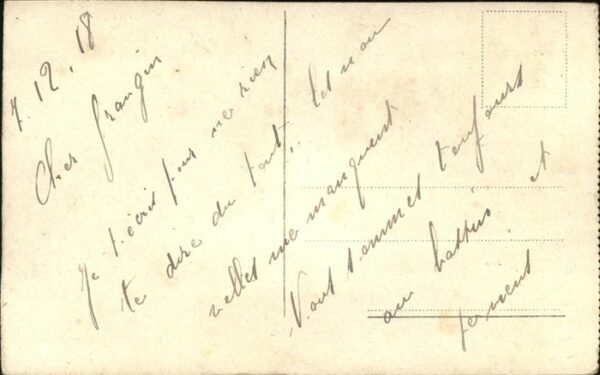 7.12.18
Cher frangin
Je t'écris pour ne rien
te dire du tout. Les nou
velles me manquent
Nous sommes toujours
au et